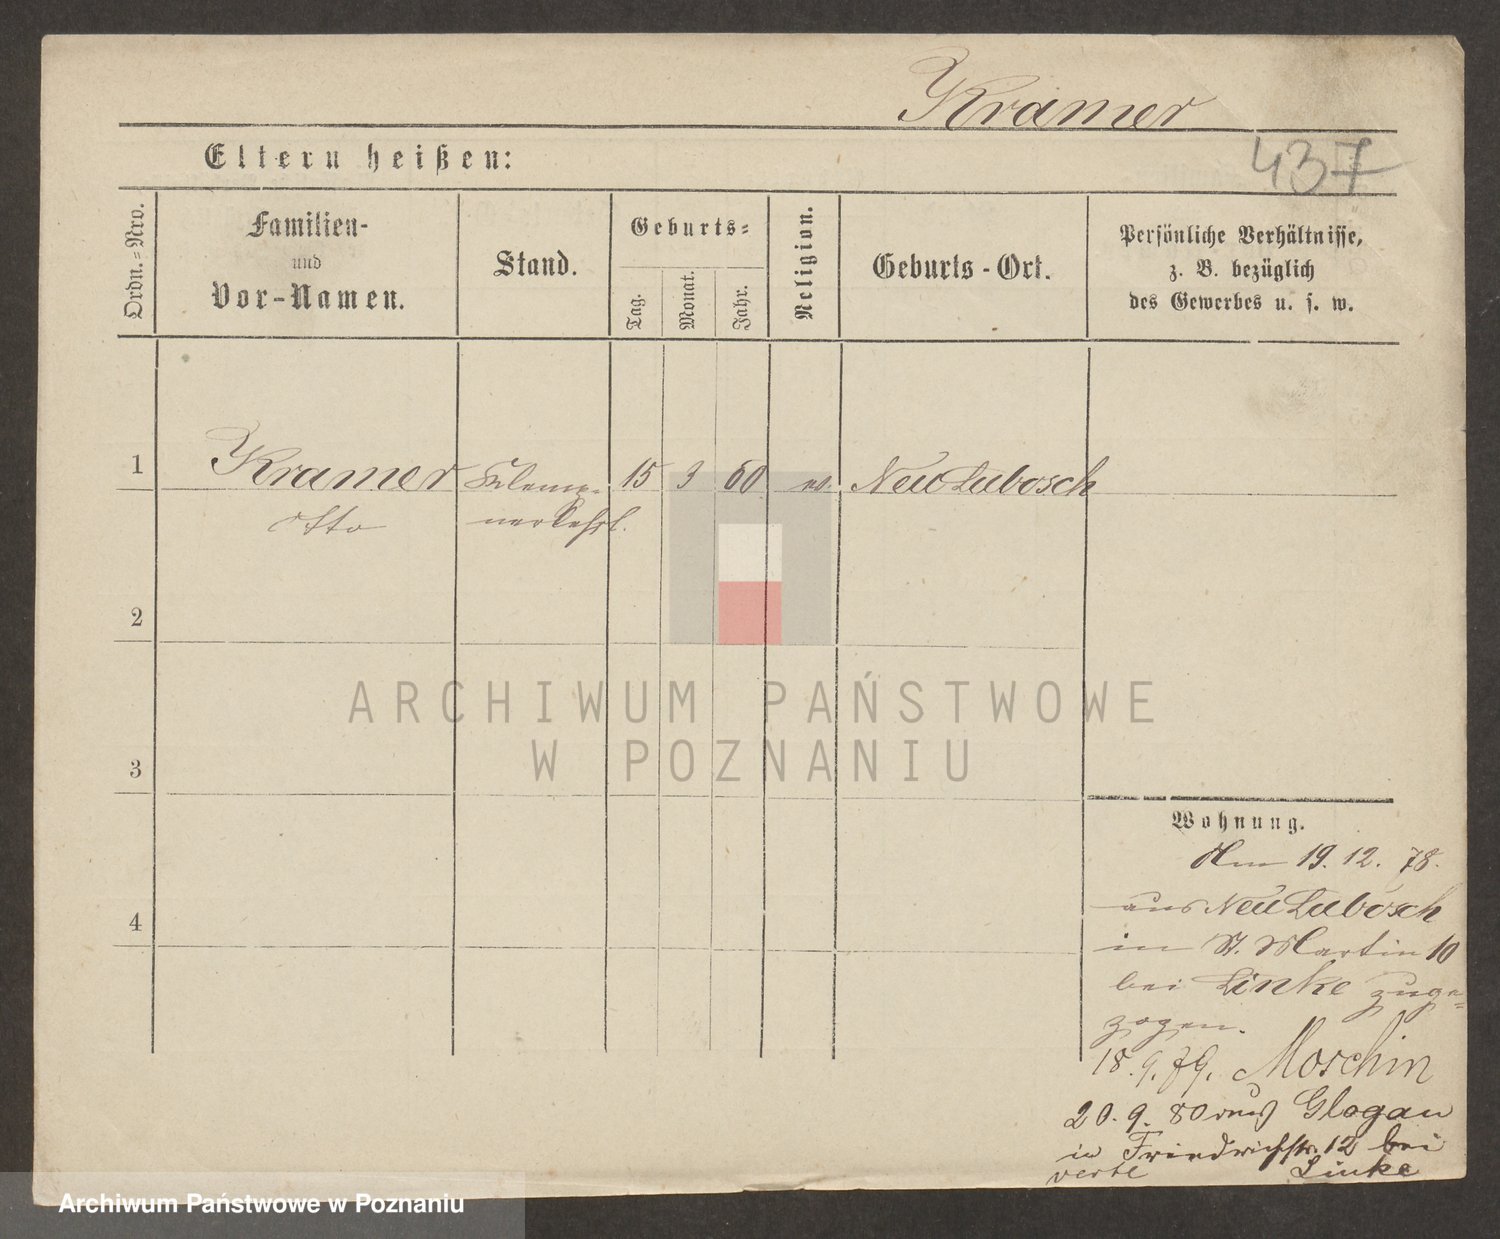 Kramer
437
Eltern heißen:
Ordn.-Nro.
Familien-
und
Vor-Namen.
Stand.
Geburts-
Tag.
Monat.
Jahr.
Religion.
Geburts-Ort.
Persönliche Verhältnisse,
z. B. bezüglich
des Gewerbes u. s. w.
1
Kramer
Klemp-
15
3
60
ev.
Neu Lubosch
Otto
nerlehrl.
2
ARCHIWUM PAŃSTWOWE
W POZNANIU
3
Wohnung.
Am 19. 12. 78.
aus Neu Lubosch
4
in St. Martin 10
bei Linke zuge-
zogen.
18. 9. 79. Moschin
20. 9. 80 aus Glogau
in Friedrichstr. 12 bei
Linke
Archiwum Państwowe w Poznaniu